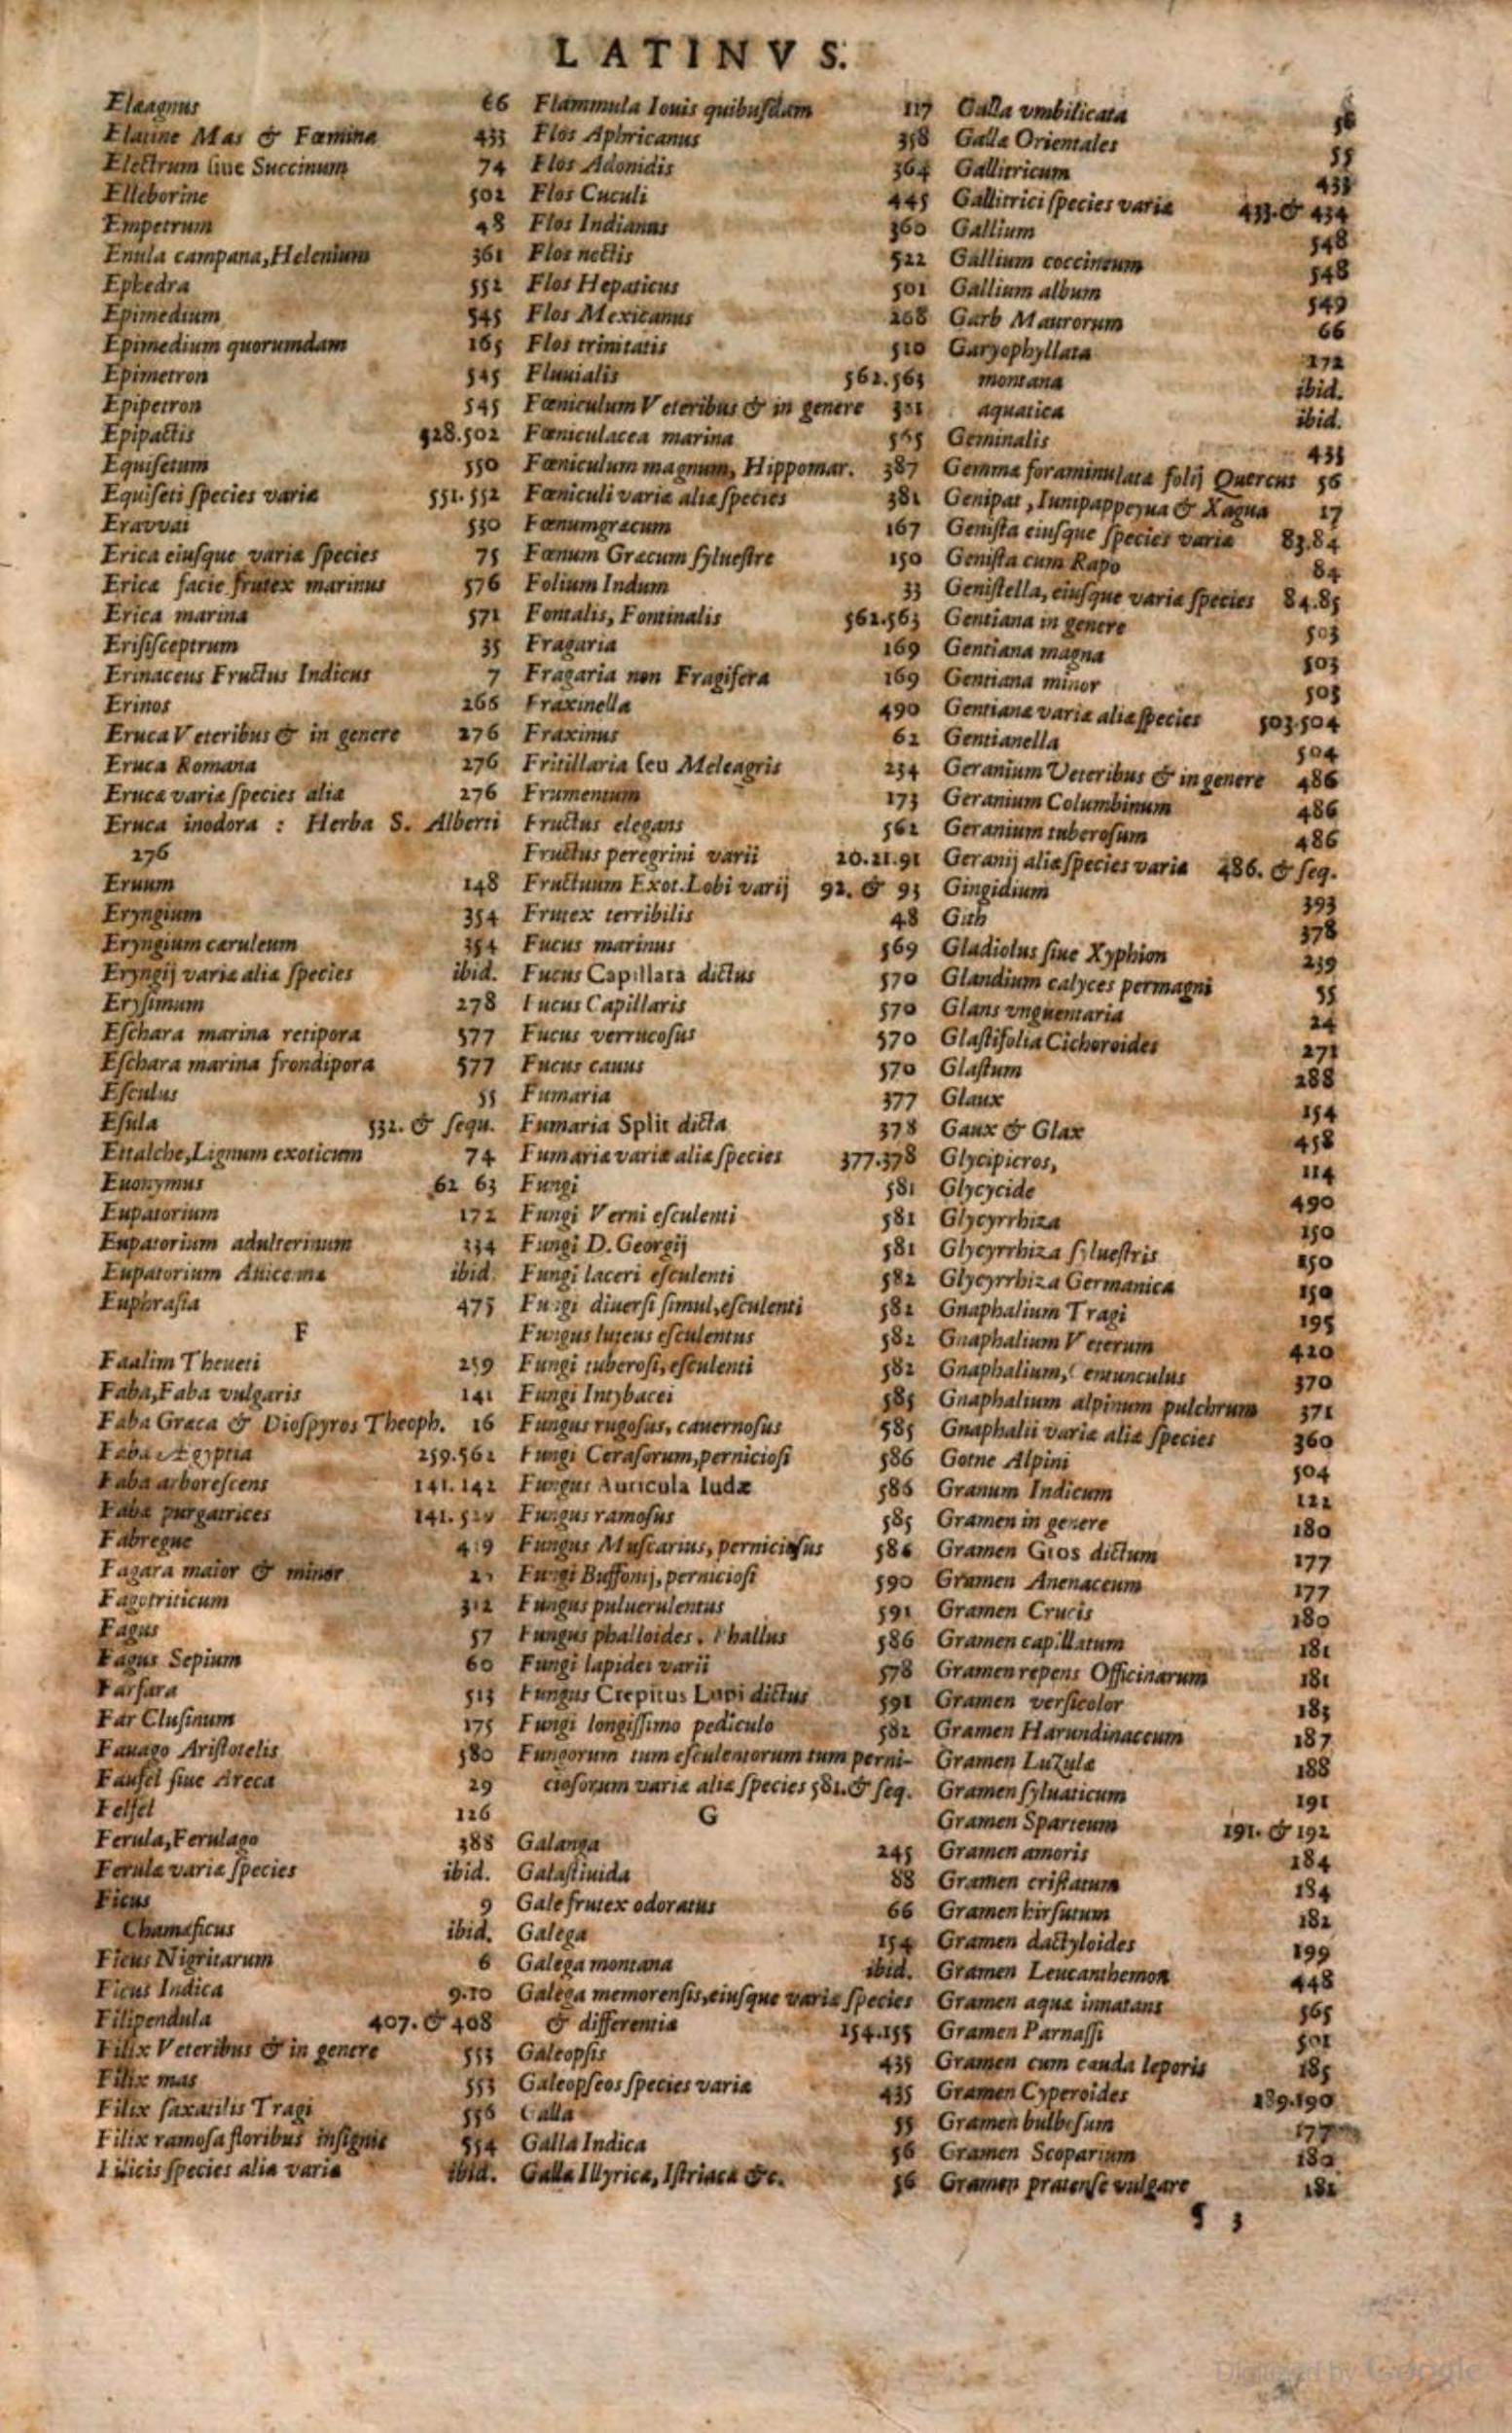 LATINVS.
Elaagnus 66
Elatine Mas & Fœmina 433
Electrum siue Succinum 74
Elleborine 502
Empetrum 48
Enula campana, Helenium 361
Ephedra 552
Epimedium 545
Epimedium quorumdam 165
Epimetron 545
Epipetron 545
Epipactis 328.502
Equisetum 550
Equiseti species variæ 551.552
Eravvai 530
Erica eiusque variæ species 75
Ericæ facie frutex marinus 576
Erica marina 571
Erisisceptrum 35
Erinaceus Fructus Indicus 7
Erinos 266
Eruca Veteribus & in genere 276
Eruca Romana 276
Erucæ variæ species aliæ 276
Eruca inodora : Herba S. Alberti
276
Eruum 148
Eryngium 354
Eryngium cæruleum 354
Eryngij variæ aliæ species ibid.
Erysimum 278
Eschara marina retipora 577
Eschara marina frondipora 577
Esculus 55
Esula 532. & sequ.
Ettalche, Lignum exoticum 74
Euonymus 62 63
Eupatorium 172
Eupatorium adulterinum 334
Eupatorium Auicennæ ibid.
Euphrasia 475
F
Faalim Theueti 259
Faba, Faba vulgaris 141
Faba Græca & Diospyros Theoph. 16
Faba Ægyptia 259.562
Faba arborescens 141.142
Fabæ purgatrices 141.
Fabregue 419
Fagara maior & minor
Fagotriticum 312
Fagus 57
Fagus Sepium 60
Farfara 513
Far Clusinum 175
Fauago Aristotelis 580
Faufel siue Areca 29
Felfel 126
Ferula, Ferulago 388
Ferulæ variæ species ibid.
Ficus 9
Chamæficus ibid.
Ficus Nigritarum 6
Ficus Indica 9.10
Filipendula 407. & 408
Filix Veteribus & in genere 553
Filix mas 553
Filix saxatilis Tragi 556
Filix ramosa floribus insignis 554
Filicis species aliæ variæ ibid.
Flammula Iouis quibusdam 117
Flos Aphricanus 358
Flos Adonidis 364
Flos Cuculi 445
Flos Indianus 360
Flos noctis 522
Flos Hepaticus 501
Flos Mexicanus 268
Flos trinitatis 510
Fluuialis 562.563
Fœniculum Veteribus & in genere 381
Fœniculacea marina 565
Fœniculum magnum, Hippomar. 387
Fœniculi variæ aliæ species 381
Fœnumgræcum 167
Fœnum Græcum syluestre 150
Folium Indum 33
Fontalis, Fontinalis 562.563
Fragaria 169
Fragaria non Fragifera 169
Fraxinella 490
Fraxinus 62
Fritillaria seu Meleagris 234
Frumentum 173
Fructus elegans 562
Fructus peregrini varii 20.21.91
Fructuum Exot. Lobi varij 92. & 93
Frutex terribilis 48
Fucus marinus 569
Fucus Capillata dictus 570
Fucus Capillaris 570
Fucus verrucosus 570
Fucus canus 570
Fumaria 377
Fumaria Split dicta 378
Fumariæ variæ aliæ species 377.378
Fungi 581
Fungi Verni esculenti 581
Fungi D. Georgij 581
Fungi laceri esculenti 582
Fungi diuersi simul, esculenti 582
Fungus luteus esculentus 582
Fungi tuberosi, esculenti 582
Fungi Intybacei 585
Fungus rugosus, cauernosus 585
Fungi Cerasorum, perniciosi 586
Fungus Auricula Iudæ 586
Fungus ramosus 585
Fungus Muscarius, perniciosus 586
Fungi Buffonij, perniciosi 590
Fungus puluerulentus 591
Fungus phalloides. Phallus 586
Fungi lapidei varii 578
Fungus Crepitus Lupi dictus 591
Fungi longissimo pediculo 582
Fungorum tum esculentorum tum perni-
ciosorum variæ aliæ species 581. & seq.
G
Galanga 245
Galastiuida 88
Gale frutex odoratus 66
Galega 154
Galega montana ibid.
Galega memorensis, eiusque variæ species
& differentia 154.155
Galeopsis 435
Galeopseos species variæ 435
Galla 55
Galla Indica 56
Galla Illyrica, Istriaca &c. 56
Galla vmbilicata 56
Gallæ Orientales 55
Gallitricum 433
Gallitrici species variæ 433. & 434
Gallium 548
Gallium coccineum 548
Gallium album 549
Garb Maurorum 66
Garyophyllata 172
montana ibid.
aquatica ibid.
Geminalis 435
Gemmæ foraminulatæ folij Quercus 56
Genipat, Iunipappeyua & Xagua 17
Genista eiusque species variæ 83.84
Genista cum Rapo 84
Genistella, eiusque variæ species 84.85
Gentiana in genere 503
Gentiana magna 503
Gentiana minor 503
Gentianæ variæ aliæ species 503.504
Gentianella 504
Geranium Veteribus & in genere 486
Geranium Columbinum 486
Geranium tuberosum 486
Geranij aliæ species variæ 486. & seq.
Gingidium 393
Gith 378
Gladiolus siue Xyphion 239
Glandium calyces permagni 55
Glans vnguentaria 24
Glastifolia Cichoroides 271
Glastum 288
Glaux 154
Gaux & Glax 458
Glycipicros, 114
Glycycide 490
Glycyrrhiza 150
Glycyrrhiza syluestris 150
Glycyrrhiza Germanica 150
Gnaphalium Tragi 195
Gnaphalium Veterum 420
Gnaphalium, Centunculus 370
Gnaphalium alpinum pulchrum 371
Gnaphalii variæ aliæ species 360
Gotne Alpini 504
Granum Indicum 122
Gramen in genere 180
Gramen Gios dictum 177
Gramen Auenaceum 177
Gramen Crucis 180
Gramen capillatum 181
Gramen repens Officinarum 181
Gramen versicolor 185
Gramen Harundinaceum 187
Gramen Luzulæ 188
Gramen syluaticum 191
Gramen Sparteum 191. & 192
Gramen amoris 184
Gramen cristatum 184
Gramen hirsutum 182
Gramen dactyloides 199
Gramen Leucanthemon 448
Gramen aquæ innatans 565
Gramen Parnassi 501
Gramen cum cauda leporis 185
Gramen Cyperoides 189.190
Gramen bulbosum 177
Gramen Scoparium 180
Gramen pratense vulgare 182
¶ 3
Digitized by Google